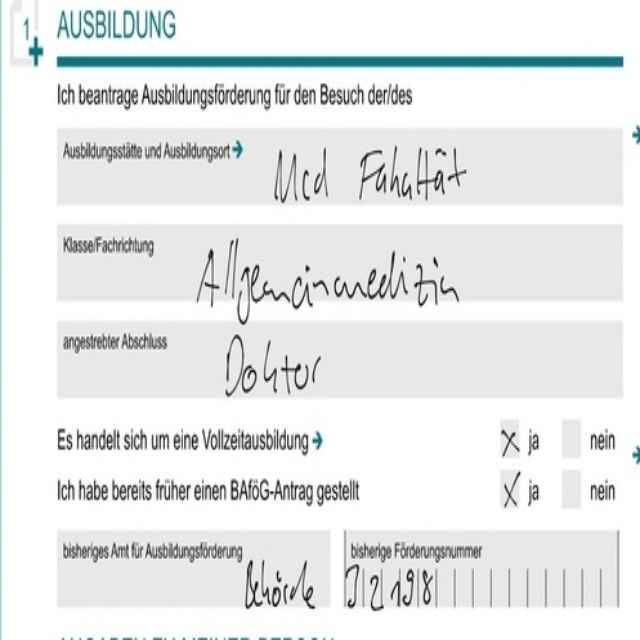 1 AUSBILDUNG
Ich beantrage Ausbildungsförderung für den Besuch der/des
Ausbildungsstätte und Ausbildungsort → Med Fakultät
Klasse/Fachrichtung Allgemeinmedizin
angestrebter Abschluss Doktor
Es handelt sich um eine Vollzeitausbildung → x ja nein
Ich habe bereits früher einen BAföG-Antrag gestellt x ja nein
bisheriges Amt für Ausbildungsförderung bisherige Förderungsnummer
Behörde 3 2 198